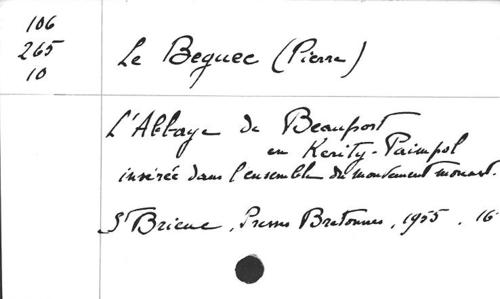 106
265
10
Le Beguec (Pierre)
L'Abbaye de Beauport
en Kerity-Paimpol
insérée dans l'ensemble du mouvement monast.
St Brieuc, Presses Bretonnes, 1955. 16